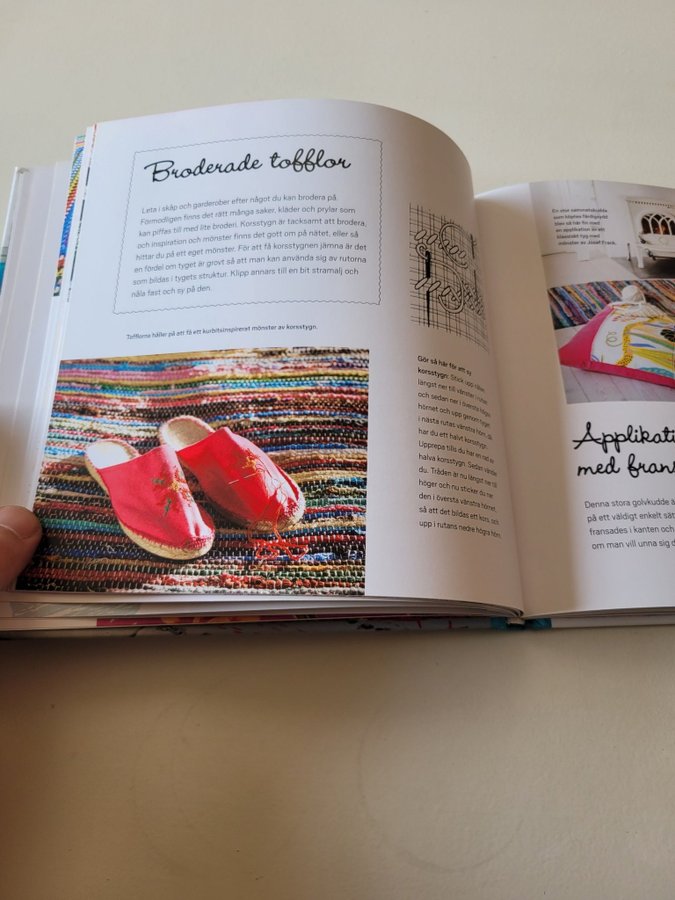 Broderade tofflor
Leta i skåp och garderober efter något du kan brodera på.
Förmodligen finns det rätt många saker, kläder och prylar som
kan piffas till med lite broderi. Korsstygn är tacksamt att brodera,
och inspiration och mönster finns det gott om på nätet, eller så
hittar du på ett eget mönster. För att få korsstygnen jämna är det
en fördel om tyget är grovt så att man kan använda sig av rutorna
som bildas i tygets struktur. Klipp annars till en bit stramalj och
nåla fast och sy på den.
Tofflorna håller på att få ett kurbitsinspirerat mönster av korsstygn.
Gör så här för att sy
korsstygn: Stick upp nålen
längst ner till vänster i rutan
och sedan ner i översta högra
hörnet och upp genom tyget
i nästa rutas vänstra hörn, då
har du ett halvt korsstygn.
Upprepa tills du har en rad av
halva korsstygn. Sedan vänder
du. Tråden är nu längst ner till
höger och nu sticker du ner
den i översta vänstra hörnet,
så att det bildas ett kors, och
upp i rutans nedre högra hörn.
En stor sammetskudde
som köptes färdigsydd
blev så här fin med
en applikation av ett
klassiskt tyg med
mönster av Josef Frank.
Applikati
med frans
Denna stora golvkudde ä
på ett väldigt enkelt sät
fransades i kanten och
om man vill unna sig d